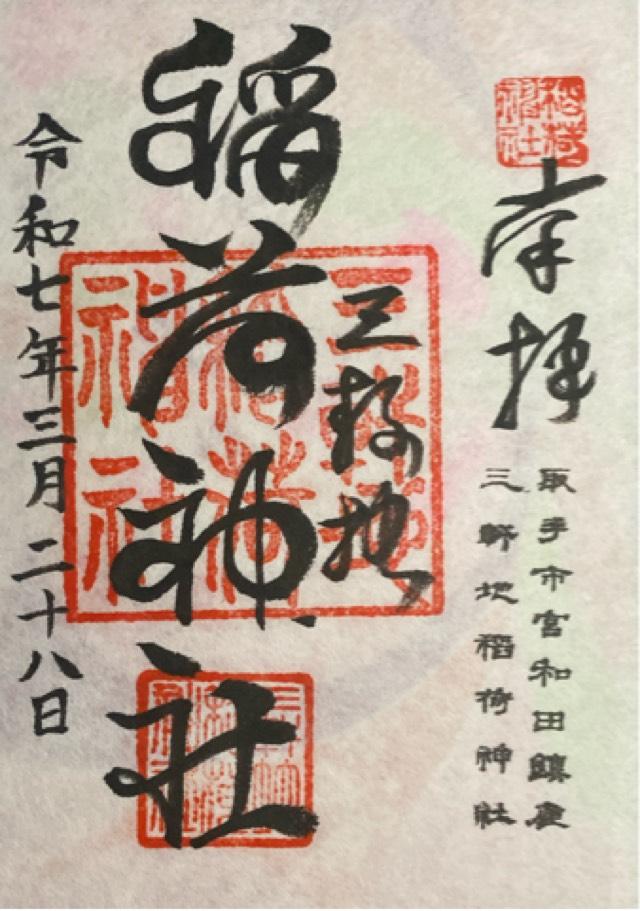 稲荷神社
奉拝
取手市宮和田鎮座
三軒地稲荷神社
三軒地
稲荷神社
三軒地稲荷神社
令和七年三月二十八日